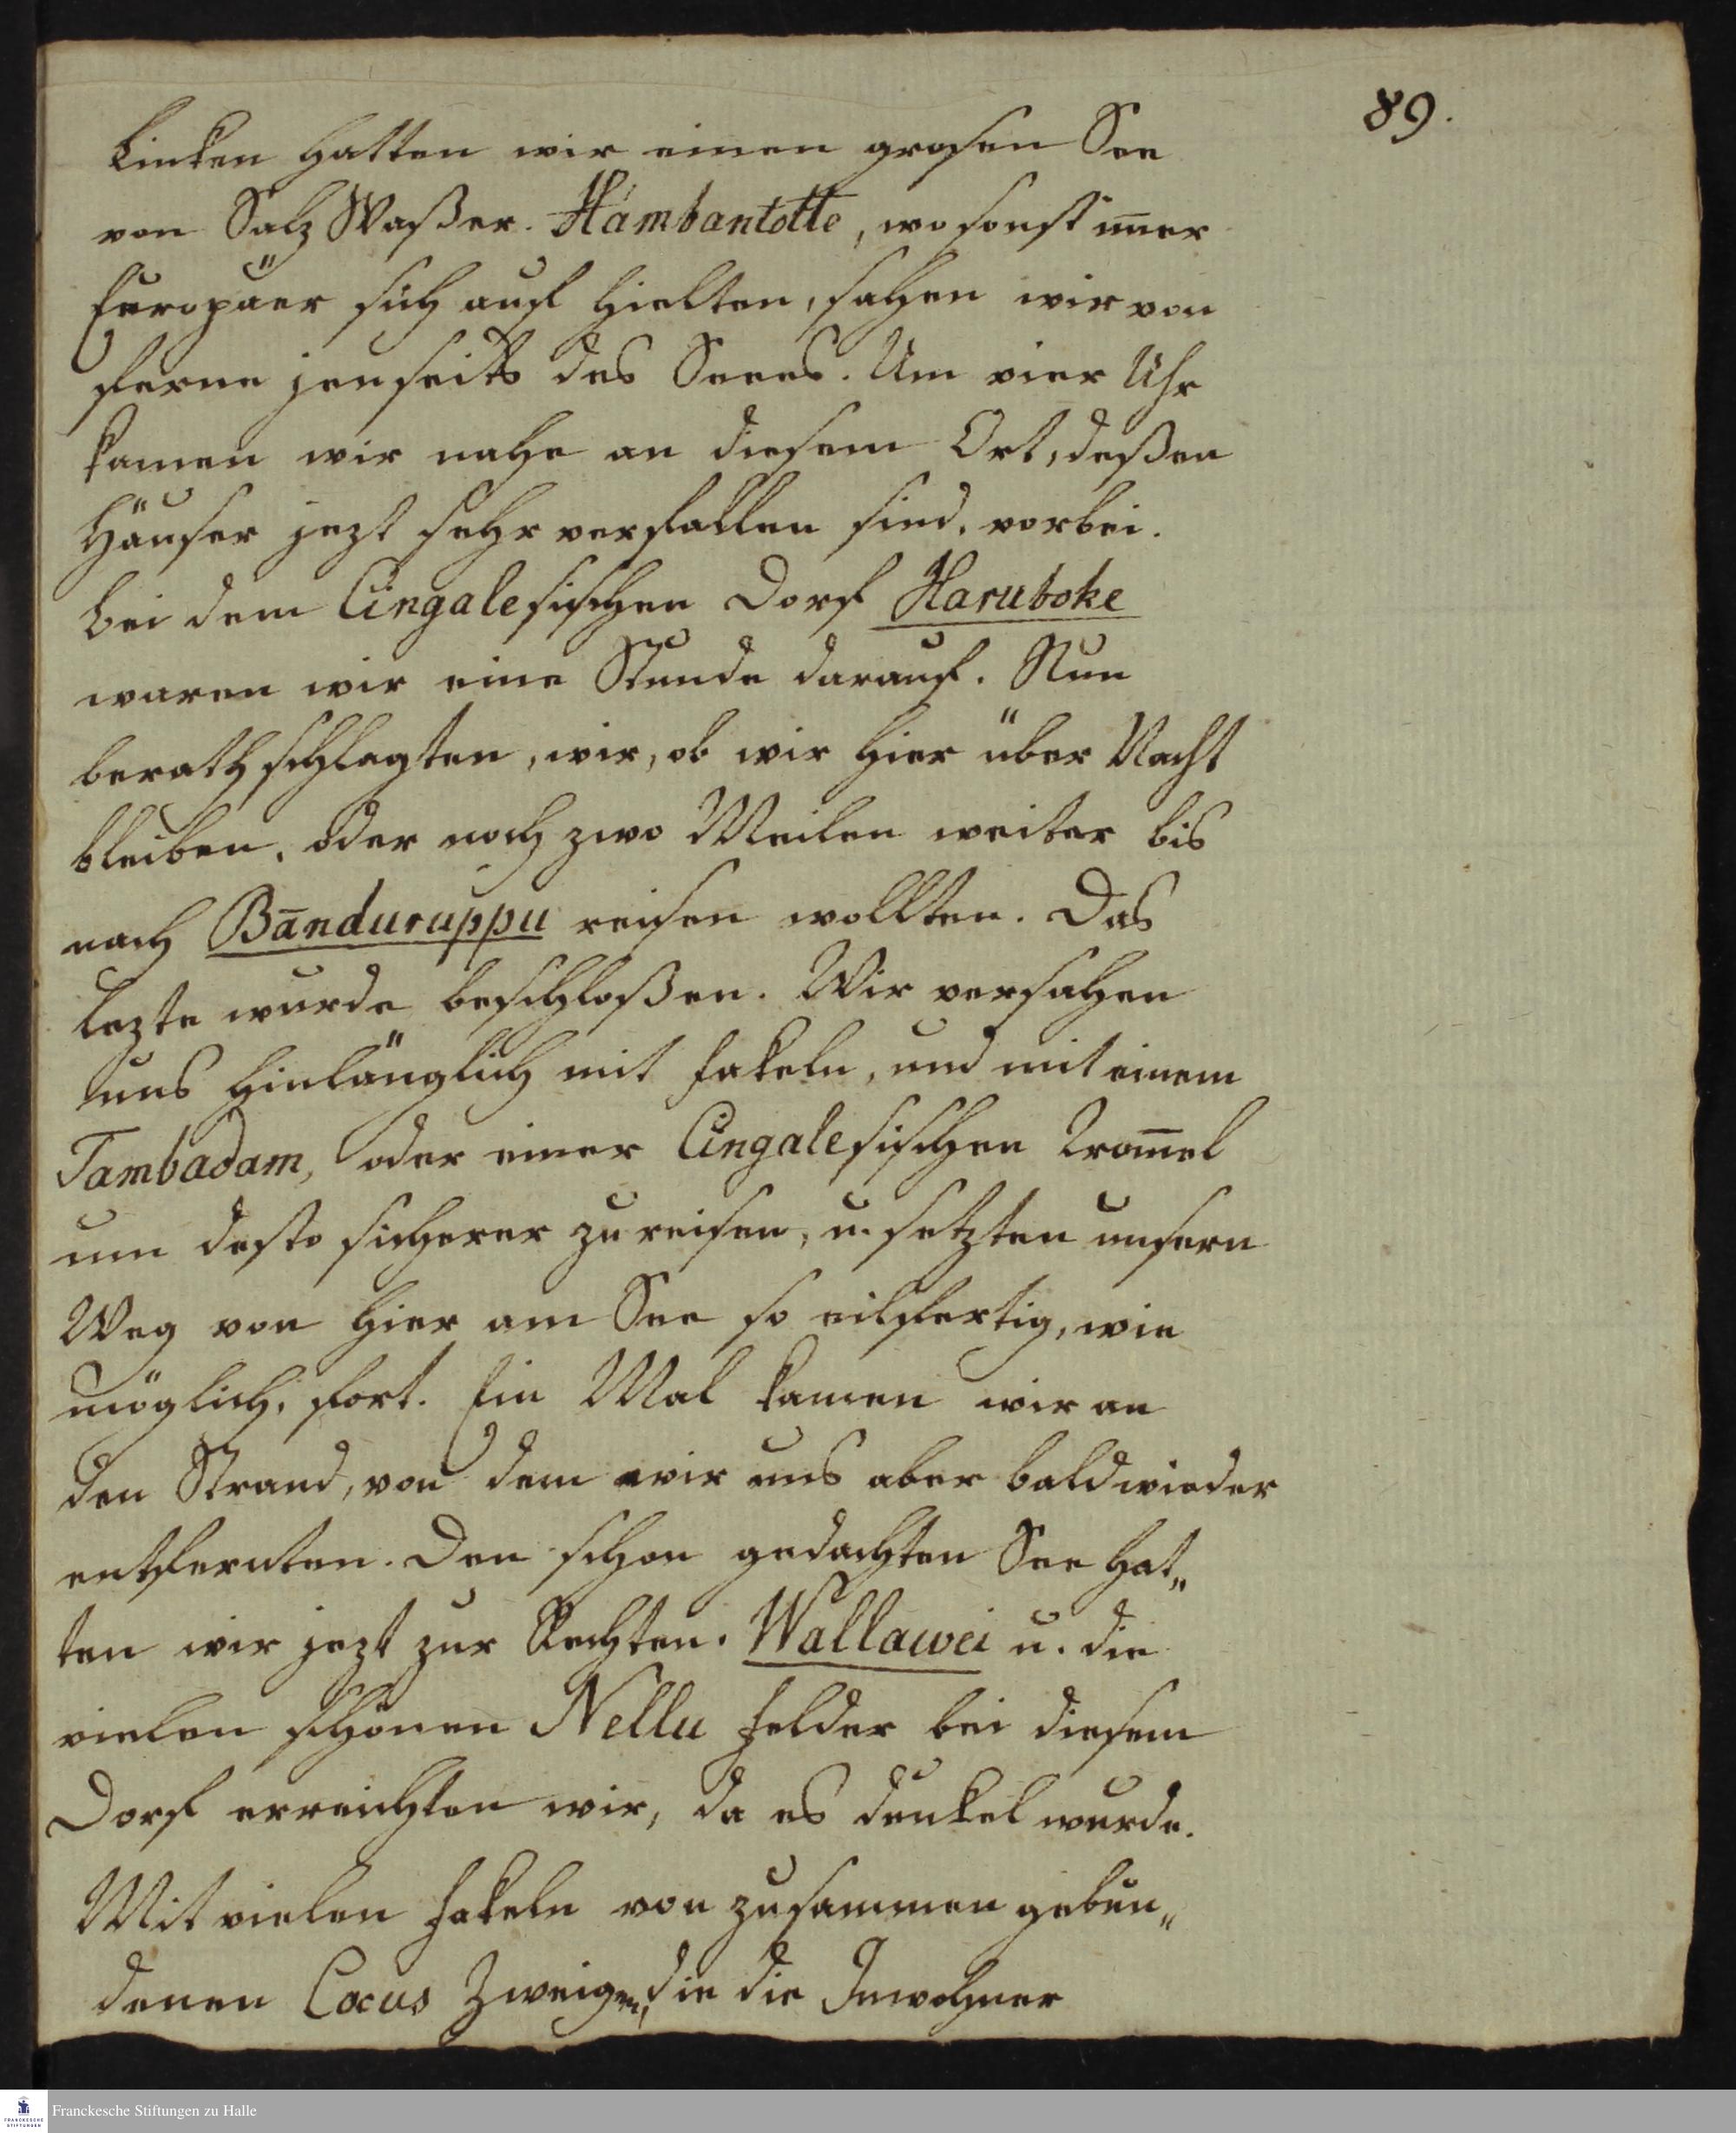 89.
Linken hatten wir einen grosen See
von Salz Waßer. Hambantotte, wo sonst im̄er
Europäer sich auf hielten, sahen wir von
ferne jenseits des Sees. Um vier Uhr
kamen wir nahe an diesem Ort, deßen
Häuser jezt sehr verfallen sind, vorbei.
bei dem Cingalesischen Dorf Haruboke
waren wir eine Stunde darauf. Nun
berathschlagten, wir, ob wir hier über Nacht
bleiben, oder noch zwo Meilen weiter bis
nach Bānduruppu reisen wollten. Das
lezte wurde beschloßen. Wir versahen
uns hinlänglich mit Fakeln, und mit einem
Tambadam, oder einer Cingalesischen Trom̄el
um desto sicherer zu reisen, u. setzten unsern
Weg von hier am See so eilfertig, wie
möglich, fort. Ein Mal kamen wir an
den Strand, von dem wir uns aber bald wieder
entfernten. Den schon gedachten See hat„
ten wir jezt zur Rechten. Wallawei u. die
vielen schönen Nellu Felder bei diesem
Dorf erreichten wir, da es dunkel wurde.
Mit vielen Fakeln von zusammen gebun„
denen Cocus Zweigen, die die Inwohner
Franckesche Stiftungen zu Halle